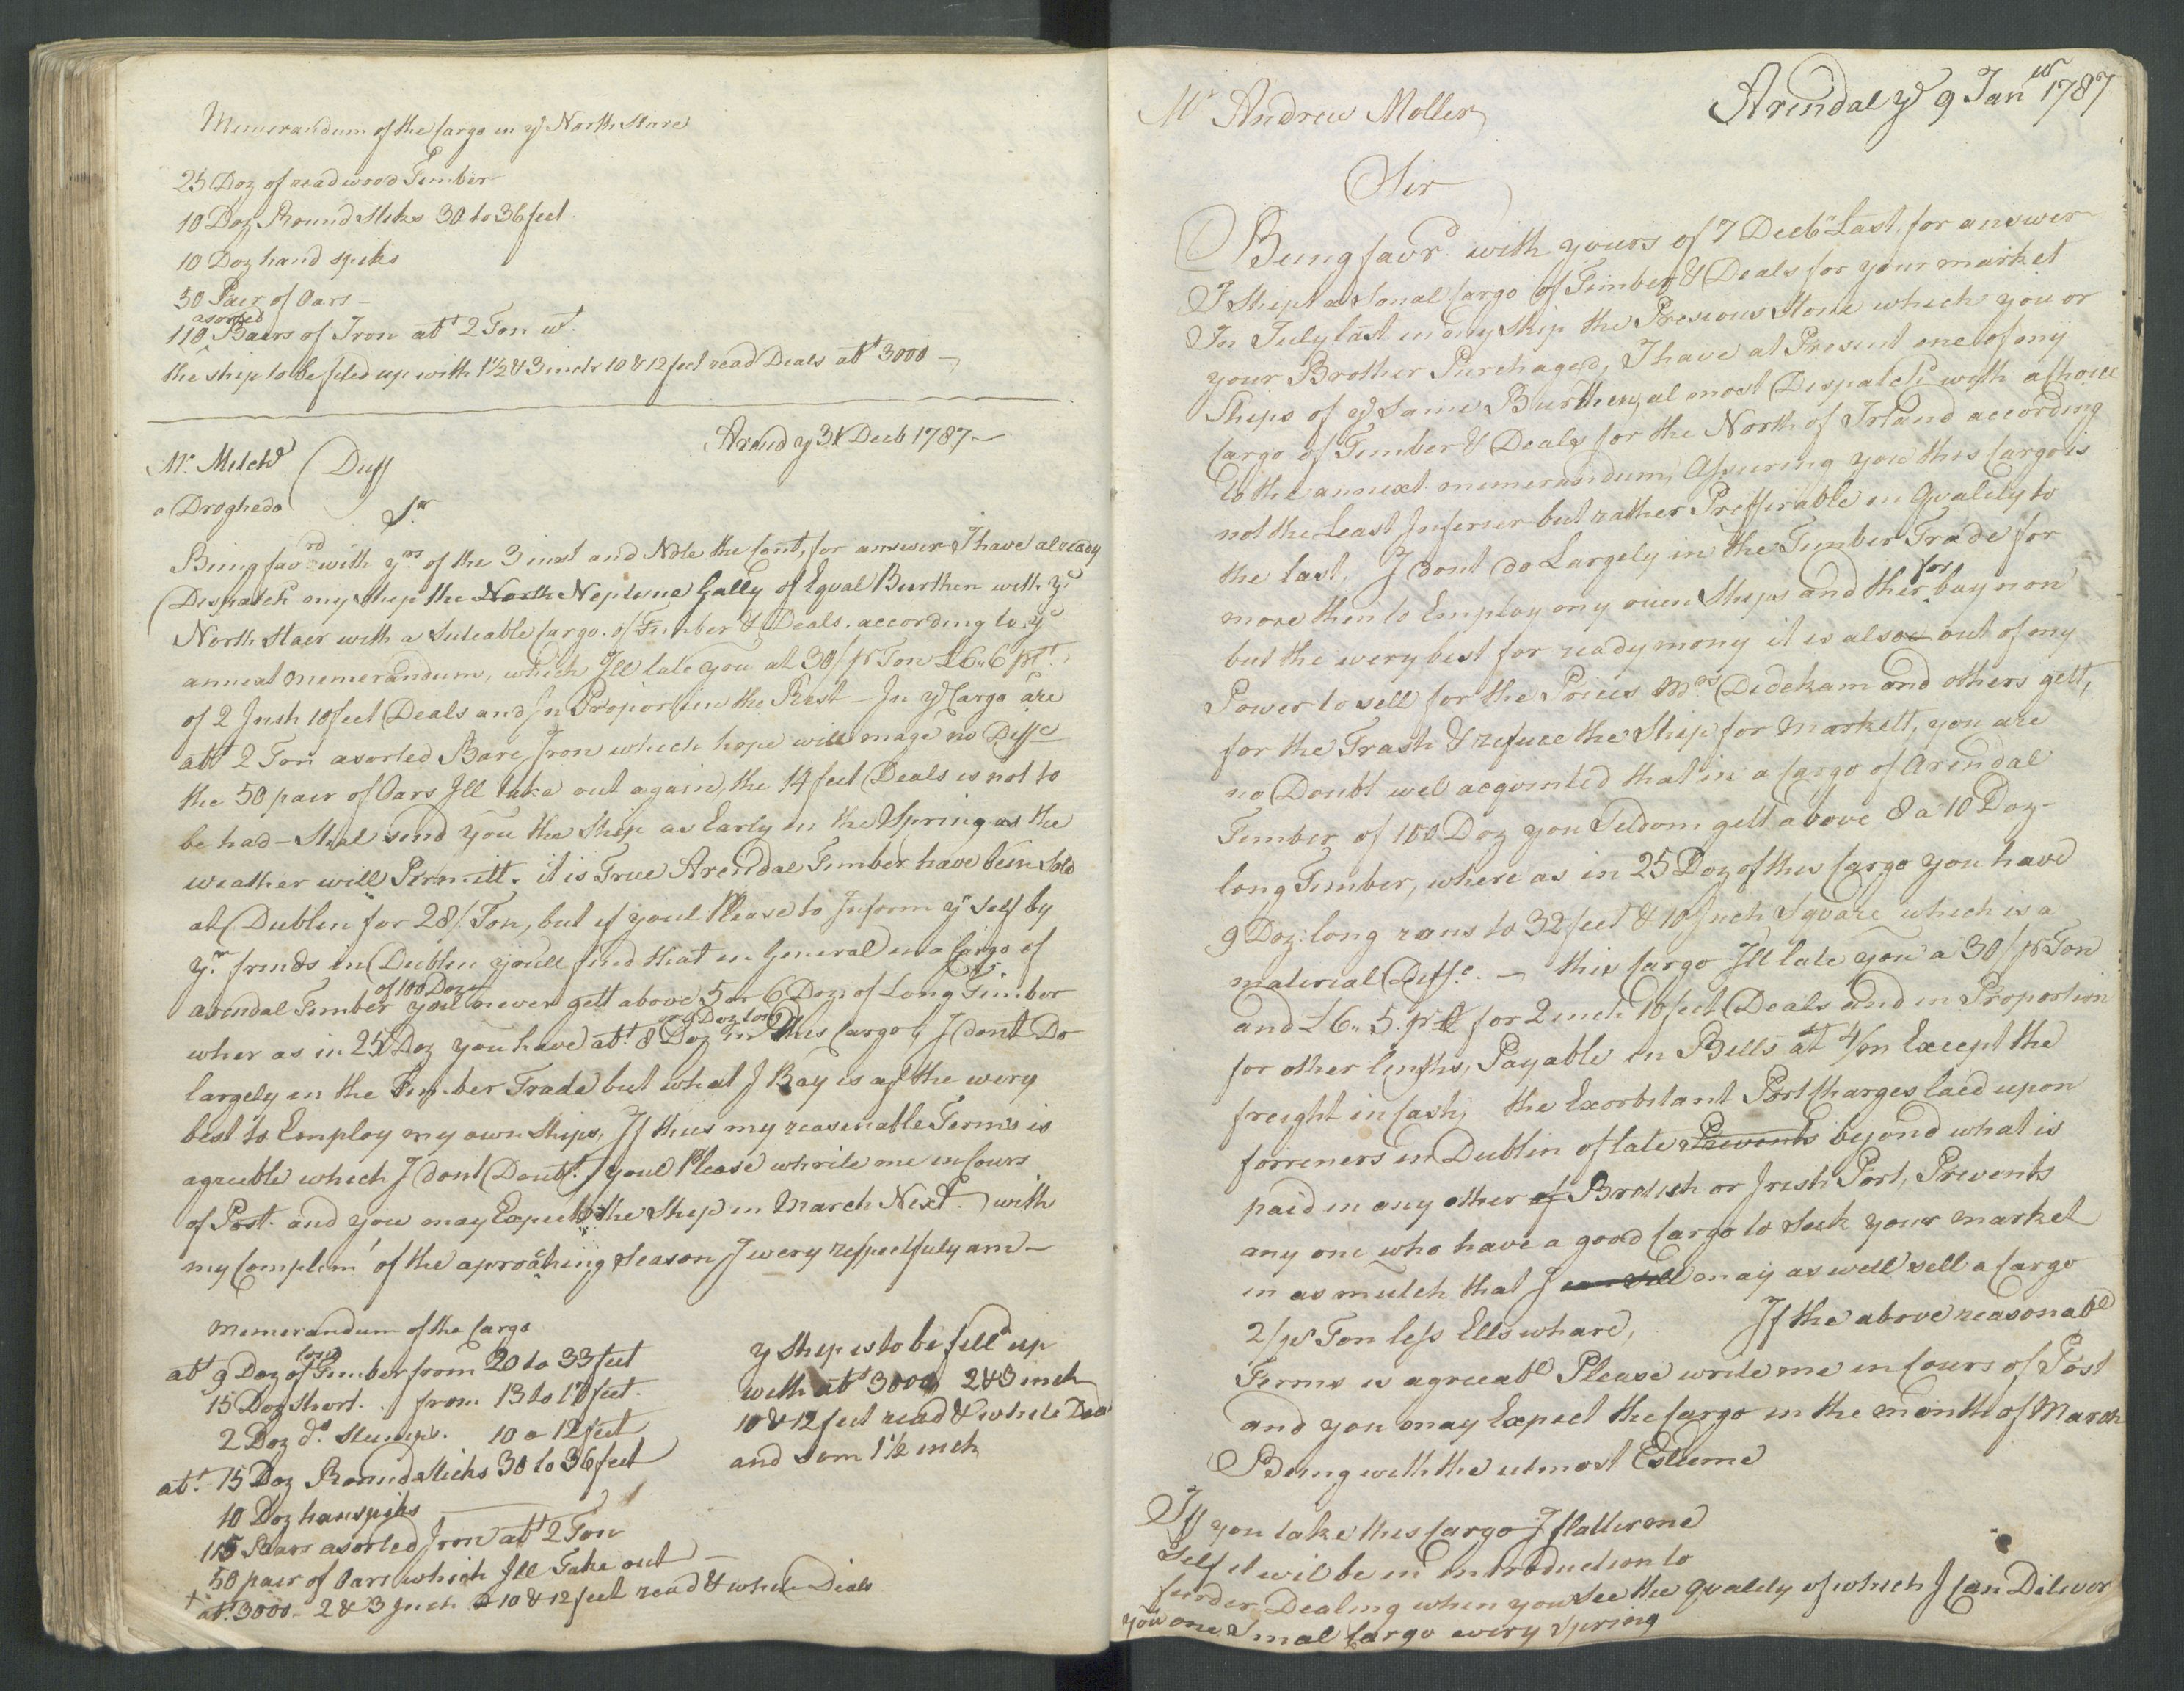 Memerandum of the Cargo in ye North Stare
25 Doz of readwood Timber
10 Doz Round Stiks 30 to 36 feet
10 Doz hand spiks
50 Paer of Oars –
asorted
110 Baers of Iron abt 2 Ton wt.
the ship to be filed up with 1½ & 3 inch 10 & 12 feet read Deals abt 3000 –
Arend ye 31 Decb 1787 –
Mr. Mitchd Duff
a Drogheda
Sr
Being favrd with yrs of the 3 inst and Note the Cont, for answer I have already
Dispatch my Ship the North Neptune Gally of Equal Burthen with ye
North Staer with a Suteable Cargo of Timber & Deals according to ye
annext memerandum, which Ill late you at 30/ pr Ton £6,,6 pr
of 2 Insh 10 feet Deals and In Proportion the Rest – In ye Cargo are
abt 2 Ton asorted Bare Iron which hope will mage no Diffe
the 50 pair of Oars Ill take out again, the 14 feet Deals is not to
be had – Shal send you the Ship as Early in the Spring as the
weather will Permitt. it is True Arendal Timber have been Sold
at Dublin for 28/ Ton, but if youl Please to Inform yr Self by
yr. frinds in Dublin youll find that in General in a Cargo of
of 100 Doz
arendal Timber you never gett above 5 or 6 Doz of Long Timber
or 9 Doz long
wher as in 25 Doz you have abt 8 Doz in this Cargo, I dont Do
largely in the Timber Trade but what I Bay is af the wery
best to Employ my own Ships, If thies my reasenable Terms is
agreeble which I dont Doubt. youl Please whrite me in Cours
of Post. and you may Expect the Ship in March Next. with
my Complem' of the aproching Season I wery respectfuly am –
Memerandum of the Cargo
long
abt 9 Doz of Timber from 20 to 33 feet
15 Doz Short. . from 13 to 17 feet.
2 Doz do. Stumps. 10 a 12 feet
abt. 15 Doz Round Sticks 30 to 36 feet
10 Doz hanspiks
115 Baars asorted Iron abt 2 Ton
50 pair of Oars which Ill Take out –
abt. 3000 – 2 & 3 Inch a 10 & 12 feet read & white Dials
y Ship is to be filld up
with abt 3000 2 & 3 inch
10 & 12 feet read & white Deal
and som 1½ inch
Arendal ye 9 Janw 1787
Mr Andrew Moller
Sir
Being favrd. with yours of 7 Decbr Last, for answer
I Shipt a Smal Cargo of Timber & Deals for your market
In July last in my Ship the Presious Stone which you or
your Brother Purchaged, I have at Present one of my
Ships of ye Same Burthen, al most Dispatchd with a Choice
Cargo of Timber & Deals for the North of Irland according
to the annext memerandum, Assuring you this Cargo is
not the Least Inferier but rather Preffirable in Qvalety to
the last. I dont do Largely in the Timber Trade for
for
more then to Employ my owen Ships and ther bay non
but the wery best for ready mony it is alsoe out of my
Power to sell for the Prices Mrs Dedekam and others gett,
for the Trash & refuce the Ship for Markett, you are
no Doubt wel acqvinted that in a Cargo of Arendal
Timber of 100 Doz you Seldom gett above 8 a 10 Doz –
long Timber, where as in 25 Doz of this Cargo you have
9 Doz: long rans to 32 feet & 10 Inch Sqvare which is a
material Diffe. – this Cargo Ill late you a 30/ pr Ton
and £6,, 5. pr C for 2 inch 10 feet Deals and in Proportion
for other lenths, Payable in Bills at 4/m Except the
freight in Cash, the Exorbitant Port Charges laed upon
forreners in Dublin of late Prevents beyond what is
paid in any other of Brdish or Irish Port, Prevents
any one who have a good Cargo to Seek your market
in as mutch that I can sell may as well sell a Cargo
2/ pr Ton less Ells whare, If the above reasonabl
Terms is agreeabl Please write me in Cours of Post
and you may Expect the Cargo in the month of March
Being with the utmost Esteeme
Iff you take this Cargo I flatter me
Self it wil be in introduction to
furder Dealing when you See the qvalety of which I Can Diliver
you one Smal Cargo every Spring